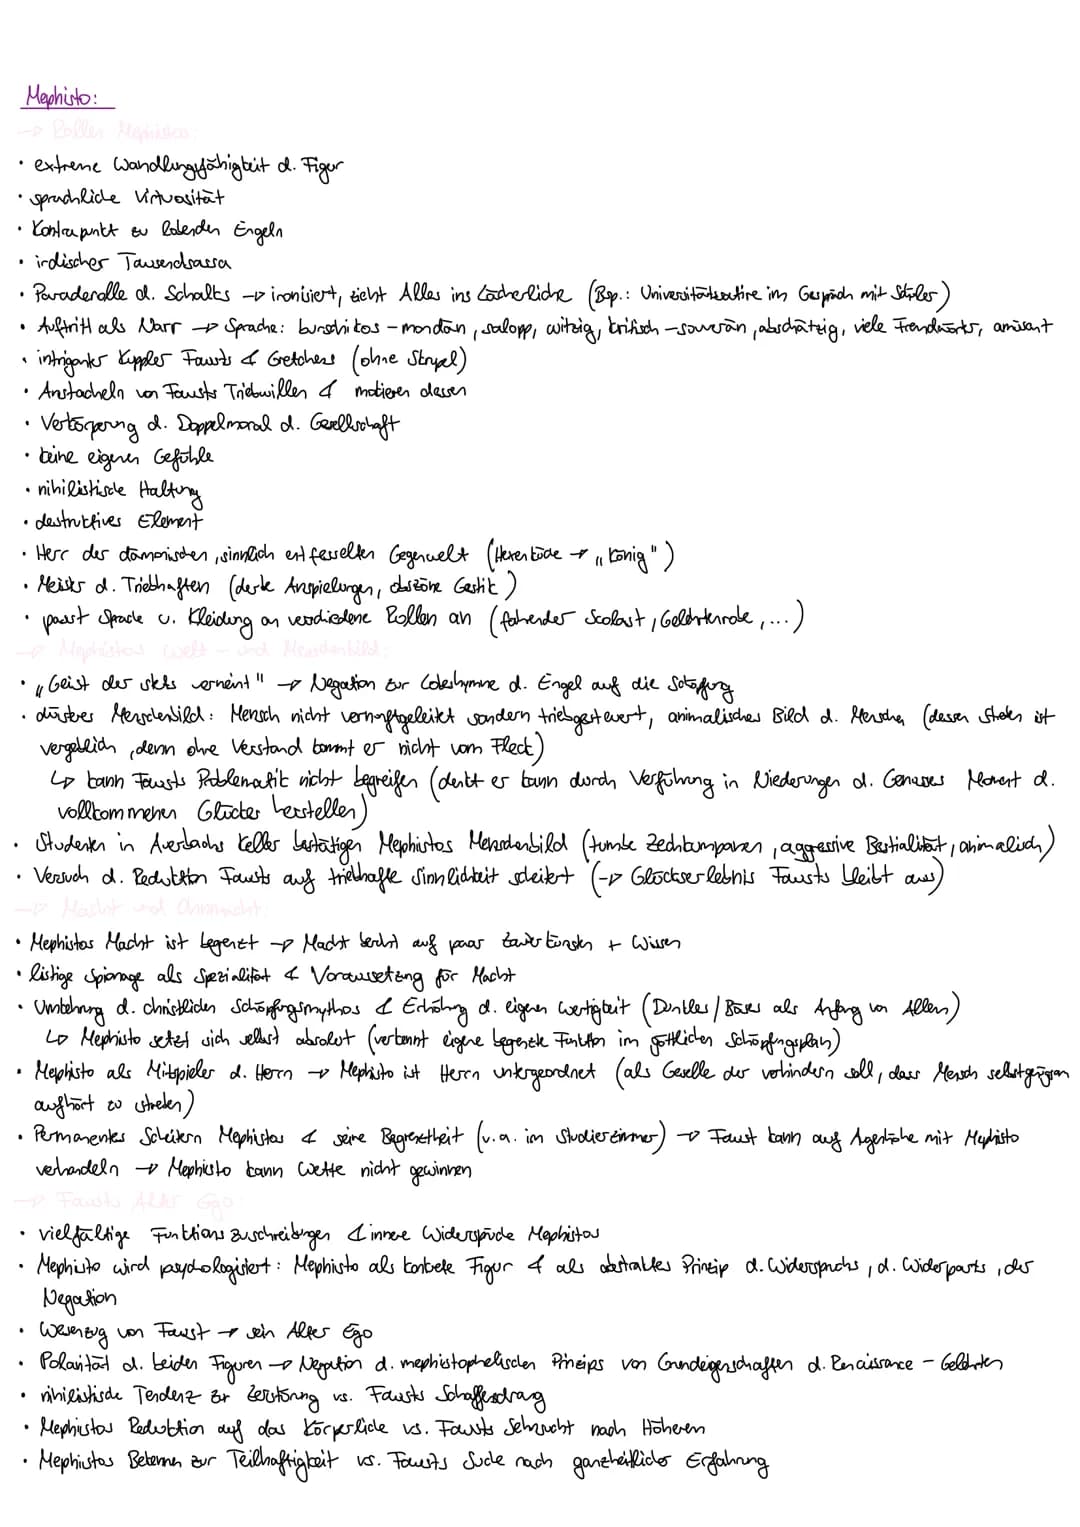 Mephisto:
→ Rollen Mephistos:
• extreme Wandlungsfähigkeit d. Figur
• sprachliche Virtuosität
• Kontrapunkt zu lobenden Engeln
• irdischer Tausendsassa
• Paraderolle d. Schalks → ironisiert, zieht Alles ins Lächerliche (Bsp.: Universitätssatire im Gespräch mit Schüler)
• Auftritt als Narr → Sprache: burschikos - mondän, salopp, witzig, kritisch - souverän, abschätzig, viele Fremdworte, amüsant
• intriganter Kuppler Fausts & Gretchens (ohne Skrupel)
• Anstacheln von Fausts Triebwillen & motivieren dessen
• Verkörperung d. Doppelmoral d. Gesellschaft
• keine eigenen Gefühle
• nihilistische Haltung
• destruktives Element
• Herr der dämonischen, sinnlich entfesselten Gegenwelt (Hexenküche → „König")
• Meister d. Triebhaften (derbe Anspielungen, obszöne Gestik)
• passt Sprache u. Kleidung an verschiedene Rollen an (fahrender Scolast, Gelehrtenrobe, ...)
→ Mephistos Welt - und Menschenbild:
• „Geist der stets verneint" → Negation zur Lobeshymne d. Engel auf die Schöpfung
• düsteres Menschenbild: Mensch nicht vernunftgeleitet sondern triebgesteuert, animalisches Bild d. Menschen (dessen Streben ist
vergeblich, denn ohne Verstand kommt er nicht vom Fleck)
↳ kann Fausts Problematik nicht begreifen (denkt er kann durch Verführung in Niederungen d. Genusses Moment d.
vollkommenen Glückes herstellen)
• Studenten in Auerbachs Keller bestätigen Mephistos Menschenbild (tumbe Zechkumpanen, aggressive Bestialität, animalisch)
• Versuch d. Reduktion Fausts auf triebhafte Sinnlichkeit scheitert (→ Glückserlebnis Fausts bleibt aus)
→ Macht und Ohnmacht:
• Mephistos Macht ist begrenzt → Macht beruht auf paar Zauberkünsten + Wissen
• listige Spionage als Spezialität & Voraussetzung für Macht
• Umkehrung d. christlichen Schöpfungsmythos & Erhöhung d. eigenen Wertigkeit (Dunkles / Böses als Anfang von Allem)
↳ Mephisto setzt sich selbst absolut (verkennt eigene begrenzte Funktion im göttlichen Schöpfungsplan)
• Mephisto als Mitspieler d. Herrn → Mephisto ist Herrn untergeordnet (als Geselle der verhindern soll, dass Mensch selbstgenügsam
aufhört zu streben)
• Permanentes Scheitern Mephistos & seine Begrenztheit (v.a. im Studierzimmer) → Faust kann auf Augenhöhe mit Mephisto
verhandeln → Mephisto kann Wette nicht gewinnen
→ Fausts Alter Ego:
• vielfältige Funktionszuschreibungen & innere Widersprüche Mephistos
• Mephisto wird psychologisiert: Mephisto als konkrete Figur & als abstraktes Prinzip d. Widerspruchs, d. Widerparts, der
Negation
• Wesenszug von Faust → sein Alter Ego
• Polarität d. beiden Figuren → Negation d. mephistophelischen Prinzips von Grundeigenschaften d. Renaissance - Gelehrten
• nihilistische Tendenz zur Zerstörung vs. Fausts Schaffensdrang
• Mephistos Reduktion auf das Körperliche vs. Fausts Sehnsucht nach Höherem
• Mephistos Bekennen zur Teilhaftigkeit vs. Fausts Suche nach ganzheitlicher Erfahrung